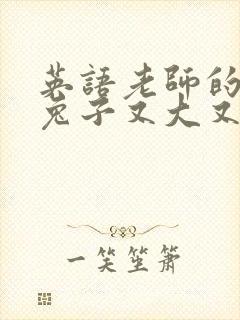 英語老師的
兔子又大又
一笑笙簫